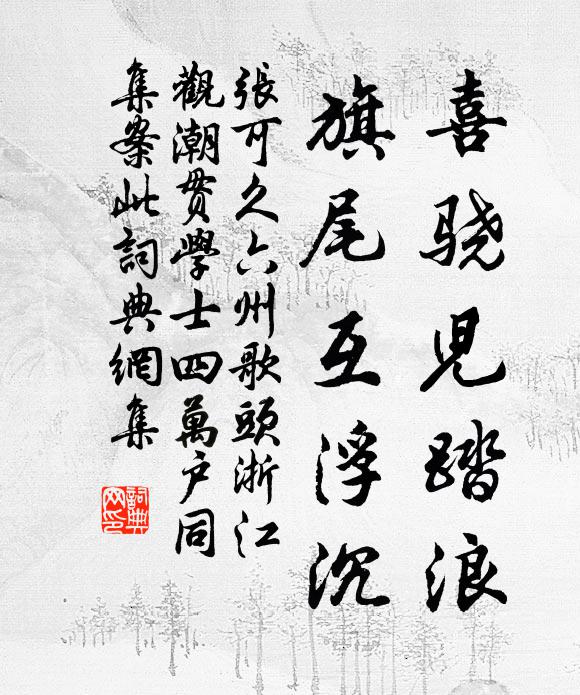 喜骁児踏浪
旗尾互浮沉
張可久六州歌頭浙江
觀潮貫學士四萬户同
集案此詞典網集
詞典
网印